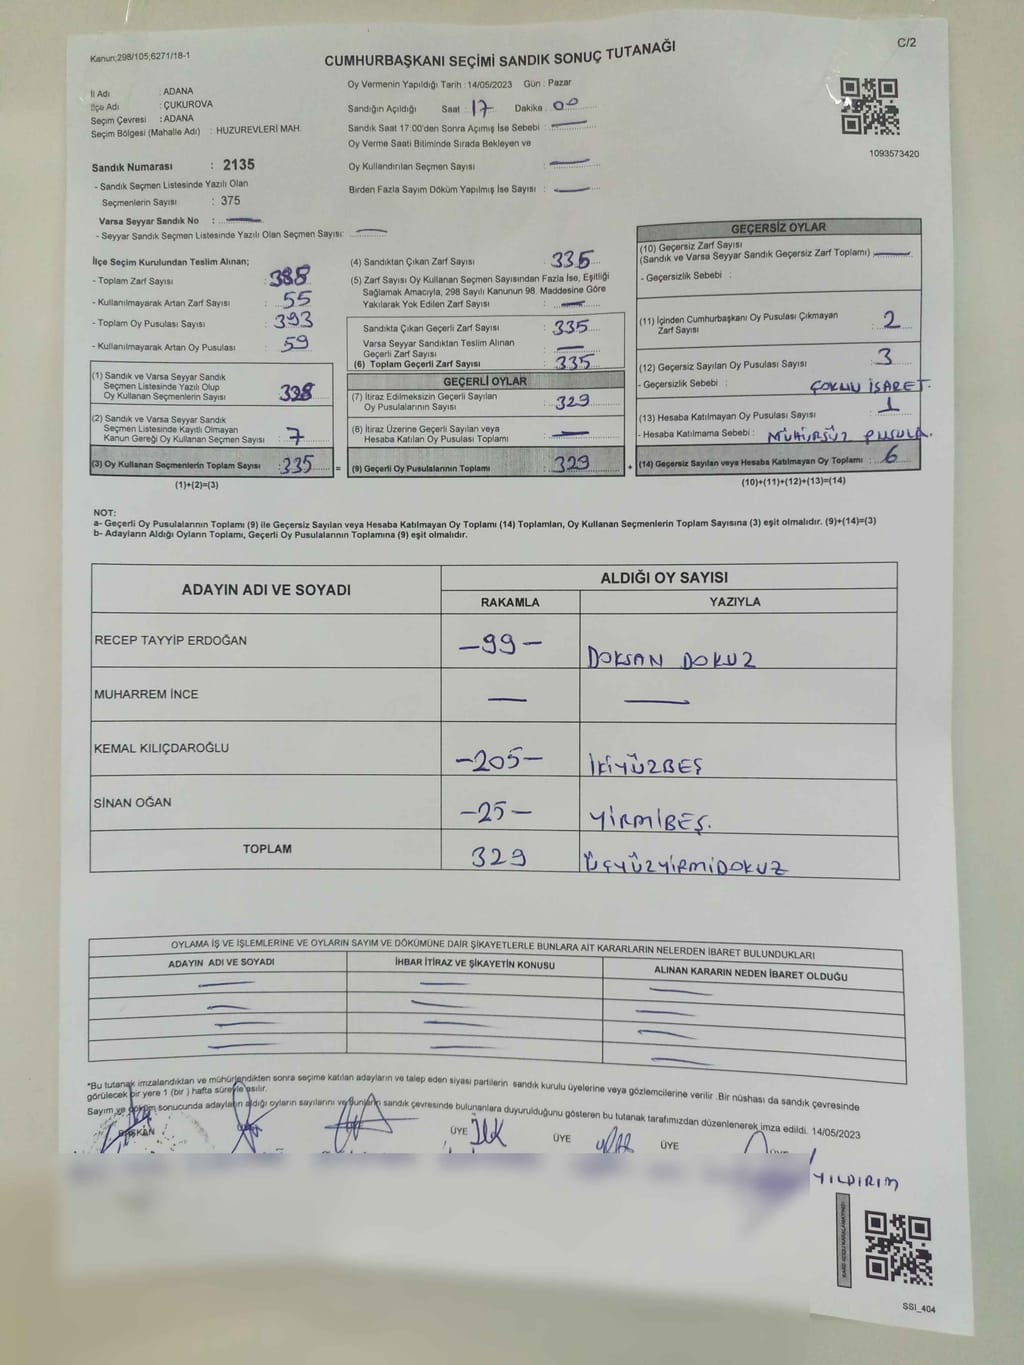 Kanun;298/105;6271/18-1
C/2
CUMHURBAŞKANI SEÇİMİ SANDIK SONUÇ TUTANAĞI
İl Adı : ADANA
İlçe Adı : ÇUKUROVA
Seçim Çevresi : ADANA
Seçim Bölgesi (Mahalle Adı) : HUZUREVLERİ MAH.
Sandık Numarası : 2135
- Sandık Seçmen Listesinde Yazılı Olan
Seçmenlerin Sayısı : 375
Varsa Seyyar Sandık No : —
- Seyyar Sandık Seçmen Listesinde Yazılı Olan Seçmen Sayısı: —
Oy Vermenin Yapıldığı Tarih : 14/05/2023 Gün : Pazar
Sandığın Açıldığı Saat : 17 Dakika : 00
Sandık Saat 17:00'den Sonra Açımış İse Sebebi : —
Oy Verme Saati Bitiminde Sırada Bekleyen ve
Oy Kullandırılan Seçmen Sayısı : —
Birden Fazla Sayım Döküm Yapılmış İse Sayısı : —
1093573420
İlçe Seçim Kurulundan Teslim Alınan;
- Toplam Zarf Sayısı :
- Kullanılmayarak Artan Zarf Sayısı : 55
- Toplam Oy Pusulası Sayısı : 393
- Kullanılmayarak Artan Oy Pusulası : 59
(1) Sandık ve Varsa Seyyar Sandık
Seçmen Listesinde Yazılı Olup
Oy Kullanan Seçmenlerin Sayısı : 328
(2) Sandık ve Varsa Seyyar Sandık
Seçmen Listesinde Kayıtlı Olmayan
Kanun Gereği Oy Kullanan Seçmen Sayısı : 7
(3) Oy Kullanan Seçmenlerin Toplam Sayısı : 335 =
(1)+(2)=(3)
(4) Sandıktan Çıkan Zarf Sayısı : 335
(5) Zarf Sayısı Oy Kullanan Seçmen Sayısından Fazla İse, Eşitliği
Sağlamak Amacıyla, 298 Sayılı Kanunun 98. Maddesine Göre
Yakılarak Yok Edilen Zarf Sayısı : —
Sandıkta Çıkan Geçerli Zarf Sayısı : 335
Varsa Seyyar Sandıktan Teslim Alınan
Geçerli Zarf Sayısı : —
(6) Toplam Geçerli Zarf Sayısı : 335
GEÇERLİ OYLAR
(7) İtiraz Edilmeksizin Geçerli Sayılan
Oy Pusulalarının Sayısı : 329
(8) İtiraz Üzerine Geçerli Sayılan veya
Hesaba Katılan Oy Pusulası Toplamı : —
(9) Geçerli Oy Pusulalarının Toplamı : 329 +
GEÇERSİZ OYLAR
(10) Geçersiz Zarf Sayısı
(Sandık ve Varsa Seyyar Sandık Geçersiz Zarf Toplamı) : —
- Geçersizlik Sebebi :
(11) İçinden Cumhurbaşkanı Oy Pusulası Çıkmayan
Zarf Sayısı : 2
(12) Geçersiz Sayılan Oy Pusulası Sayısı : 3
- Geçersizlik Sebebi : İŞARET.
(13) Hesaba Katılmayan Oy Pusulası Sayısı : 1
- Hesaba Katılmama Sebebi : MÜHÜRSÜZ PUSULA.
(14) Geçersiz Sayılan veya Hesaba Katılmayan Oy Toplamı : 6
(10)+(11)+(12)+(13)=(14)
NOT:
a- Geçerli Oy Pusulalarının Toplamı (9) ile Geçersiz Sayılan veya Hesaba Katılmayan Oy Toplamı (14) Toplamları, Oy Kullanan Seçmenlerin Toplam Sayısına (3) eşit olmalıdır. (9)+(14)=(3)
b- Adayların Aldığı Oyların Toplamı, Geçerli Oy Pusulalarının Toplamına (9) eşit olmalıdır.
ADAYIN ADI VE SOYADI
ALDIĞI OY SAYISI
RAKAMLA YAZIYLA
RECEP TAYYİP ERDOĞAN –99– DOKSAN DOKUZ
MUHARREM İNCE — —
KEMAL KILIÇDAROĞLU –205– İKİYÜZBEŞ
SİNAN OĞAN –25– YİRMİBEŞ.
TOPLAM 329 ÜÇYÜZYİRMİDOKUZ
OYLAMA İŞ VE İŞLEMLERİNE VE OYLARIN SAYIM VE DÖKÜMÜNE DAİR ŞİKAYETLERLE BUNLARA AİT KARARLARIN NELERDEN İBARET BULUNDUKLARI
ADAYIN ADI VE SOYADI İHBAR İTİRAZ VE ŞİKAYETİN KONUSU ALINAN KARARIN NEDEN İBARET OLDUĞU
*Bu tutanak imzalandıktan ve mühürlendikten sonra seçime katılan adayların ve talep eden siyasi partilerin sandık kurulu üyelerine veya gözlemcilerine verilir .Bir nüshası da sandık çevresinde
görülecek bir yere 1 (bir ) hafta süreyle asılır.
Sayım ve döküm sonucunda adayların aldığı oyların sayılarını ve bunların sandık çevresinde bulunanlara duyurulduğunu gösteren bu tutanak tarafımızdan düzenlenerek imza edildi. 14/05/2023
BAŞKAN ÜYE ÜYE ÜYE
YILDIRIM
SSI_404